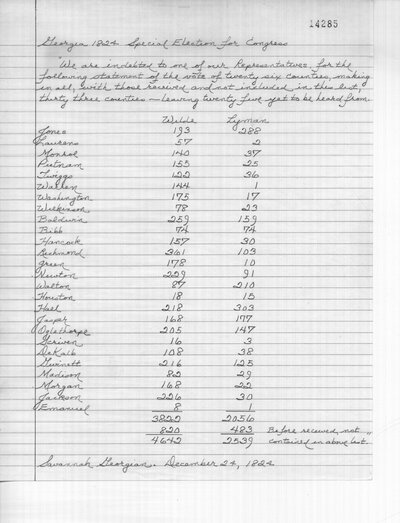 14285
Georgia 1824 Special Election for Congress
"We are indebted to one of our Representatives, for the
following statement of the vote of twenty six counties, making
in all, with those received and not included in this list,
thirty three counties — leaving twenty five yet to be heard from.
Wilde Lyman
Jones 193 288
Laurens 57 2
Monroe 140 37
Putnam 155 25
Twiggs 122 36
Warren 144 1
Washington 175 17
Wilkinson 78 23
Baldwin 259 159
Bibb 74 74
Hancock 157 30
Richmond 361 103
Green 178 10
Newton 229 91
Walton 87 210
Houston 18 15
Hall 218 303
Jasper 168 177
Oglethorpe 205 147
Scriven 16 3
DeKalb 108 38
Gwinett 216 125
Madison 82 29
Morgan 168 22
Jackson 226 30
Emanuel 8 1
3822 2056
820 483 Before received, not
4642 2539 contained in above list."
Savannah Georgian. December 24, 1824